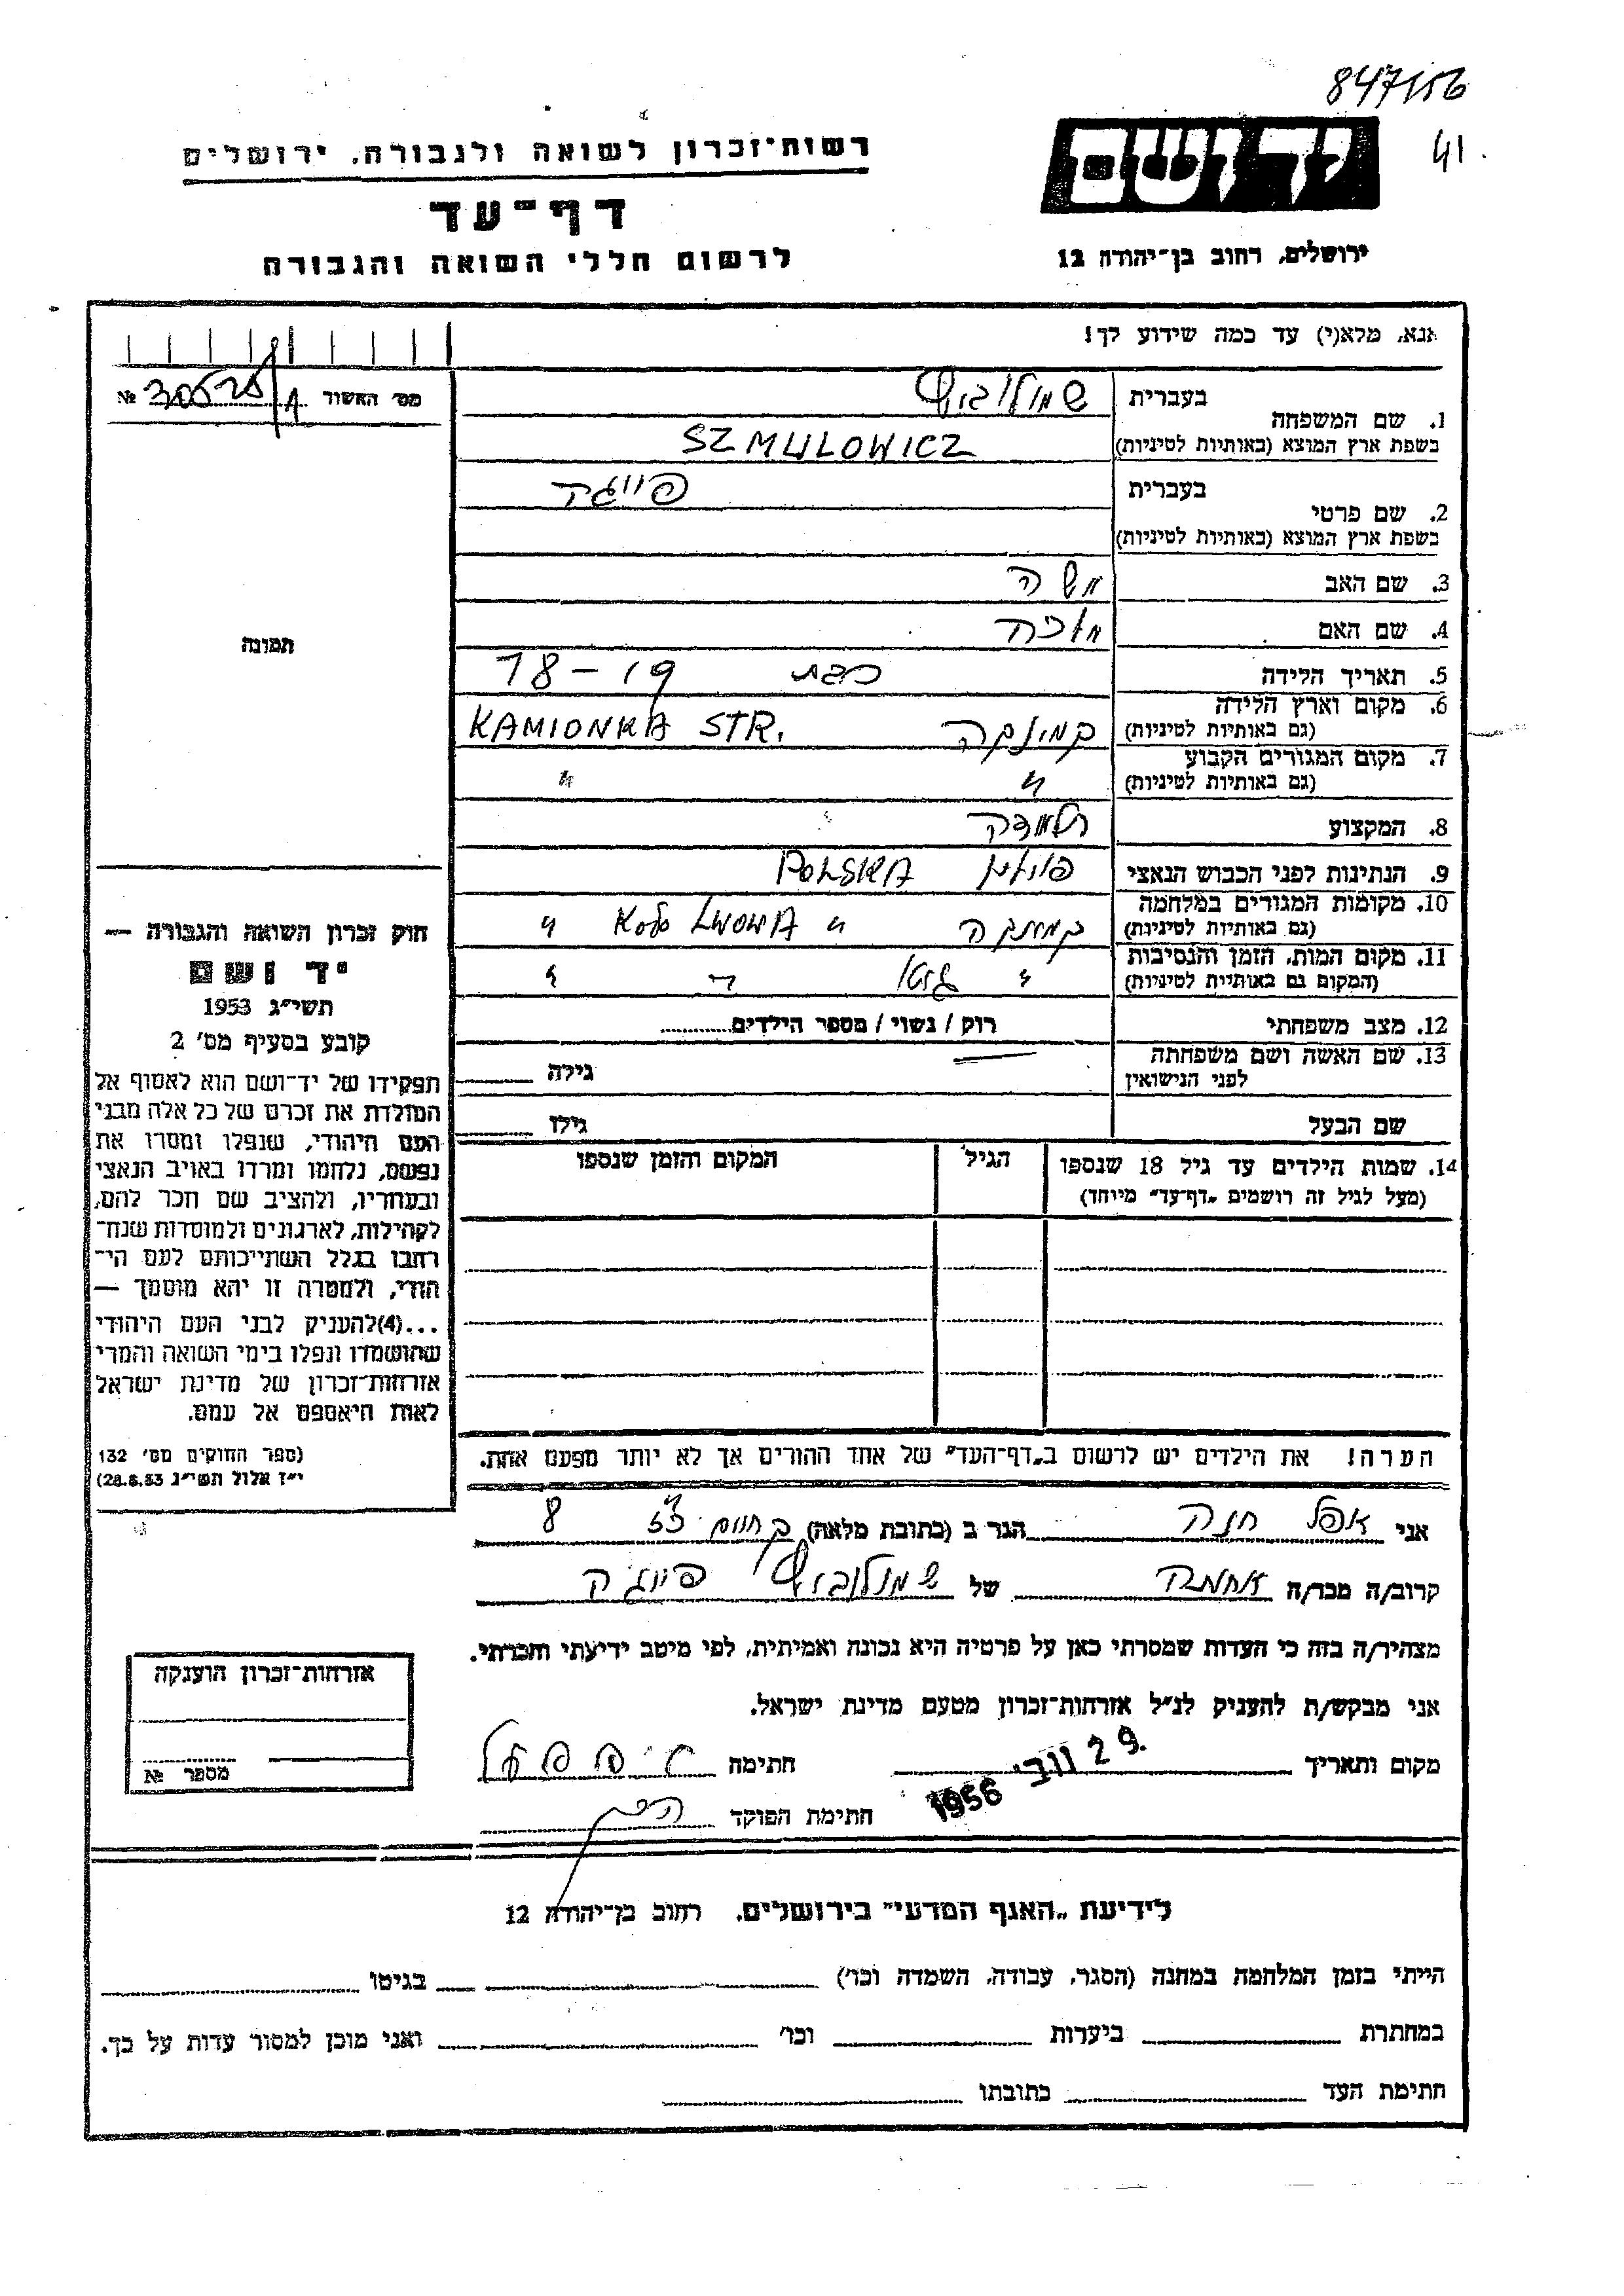 847156
41
יד ושם
רשות־זכרון לשואה ולגבורה, ירושלים
דף־עד
לרשום חללי השואה והגבורה
ירושלים, רחוב בן־יהודה 12
אנא, מלא(י) עד כמה שידוע לך!
מס׳ האשור № 30525/A
1. שם המשפחה בעברית שמולוביץ
בשפת ארץ המוצא (באותיות לטיניות) SZMULOWICZ
2. שם פרטי בעברית פייגה
בשפת ארץ המוצא (באותיות לטיניות)
3. שם האב משה
4. שם האם מלכה
5. תאריך הלידה כבת 18-19
6. מקום וארץ הלידה (גם באותיות לטיניות) קמינקה KAMIONKA STR.
7. מקום המגורים הקבוע (גם באותיות לטיניות) " "
8. המקצוע תלמידה
9. הנתינות לפני הכבוש הנאצי פולין POLSKA
10. מקומות המגורים במלחמה (גם באותיות לטיניות) קמינקה " KOŁO LWOWA "
11. מקום המות, הזמן והנסיבות (המקום גם באותיות לטיניות) " גטו " "
12. מצב משפחתי רוק / נשוי / מספר הילדים
13. שם האשה ושם משפחתה לפני הנישואין גילה
שם הבעל גילו
14. שמות הילדים עד גיל 18 שנספו (מעל לגיל זה רושמים „דף־עד״ מיוחד) הגיל המקום והזמן שנספו
תמונה
חוק זכרון השואה והגבורה —
יד ושם
תשי״ג 1953
קובע בסעיף מס׳ 2
תפקידו של יד־ושם הוא לאסוף אל
המולדת את זכרם של כל אלה מבני
העם היהודי, שנפלו ומסרו את
נפשם, נלחמו ומרדו באויב הנאצי
ובעוזריו, ולהציב שם וזכר להם,
לקהילות, לארגונים ולמוסדות שנח־
רבו בגלל השתייכותם לעם הי־
הודי, ולמטרה זו יהא מוסמך —
...(4) להעניק לבני העם היהודי
שהושמדו ונפלו בימי השואה והמרי
אזרחות־זכרון של מדינת ישראל
לאות היאספם אל עמם.
(ספר החוקים מס׳ 132
י״ז אלול תשי״ג 28.8.53)
הערה! את הילדים יש לרשום ב„דף־העד״ של אחד ההורים אך לא יותר מפעם אחת.
אני אפל חנה הגר ב (כתובת מלאה) 8
קרוב/ה מכר/ה אחותה של שמולוביץ פייגה
מצהיר/ה בזה כי העדות שמסרתי כאן על פרטיה היא נכונה ואמיתית, לפי מיטב ידיעתי והכרתי.
אני מבקש/ת להעניק לנ״ל אזרחות־זכרון מטעם מדינת ישראל.
מקום ותאריך 29. נוב׳ 1956 חתימה
חתימת הפוקד
אזרחות־זכרון הוענקה
מספר №
לידיעת „האגף המדעי״ בירושלים, רחוב בן־יהודה 12
הייתי בזמן המלחמה במחנה (הסגר, עבודה, השמדה וכו׳) בגיטו
במחתרת ביערות וכו׳ ואני מוכן למסור עדות על כך.
חתימת העד כתובתו